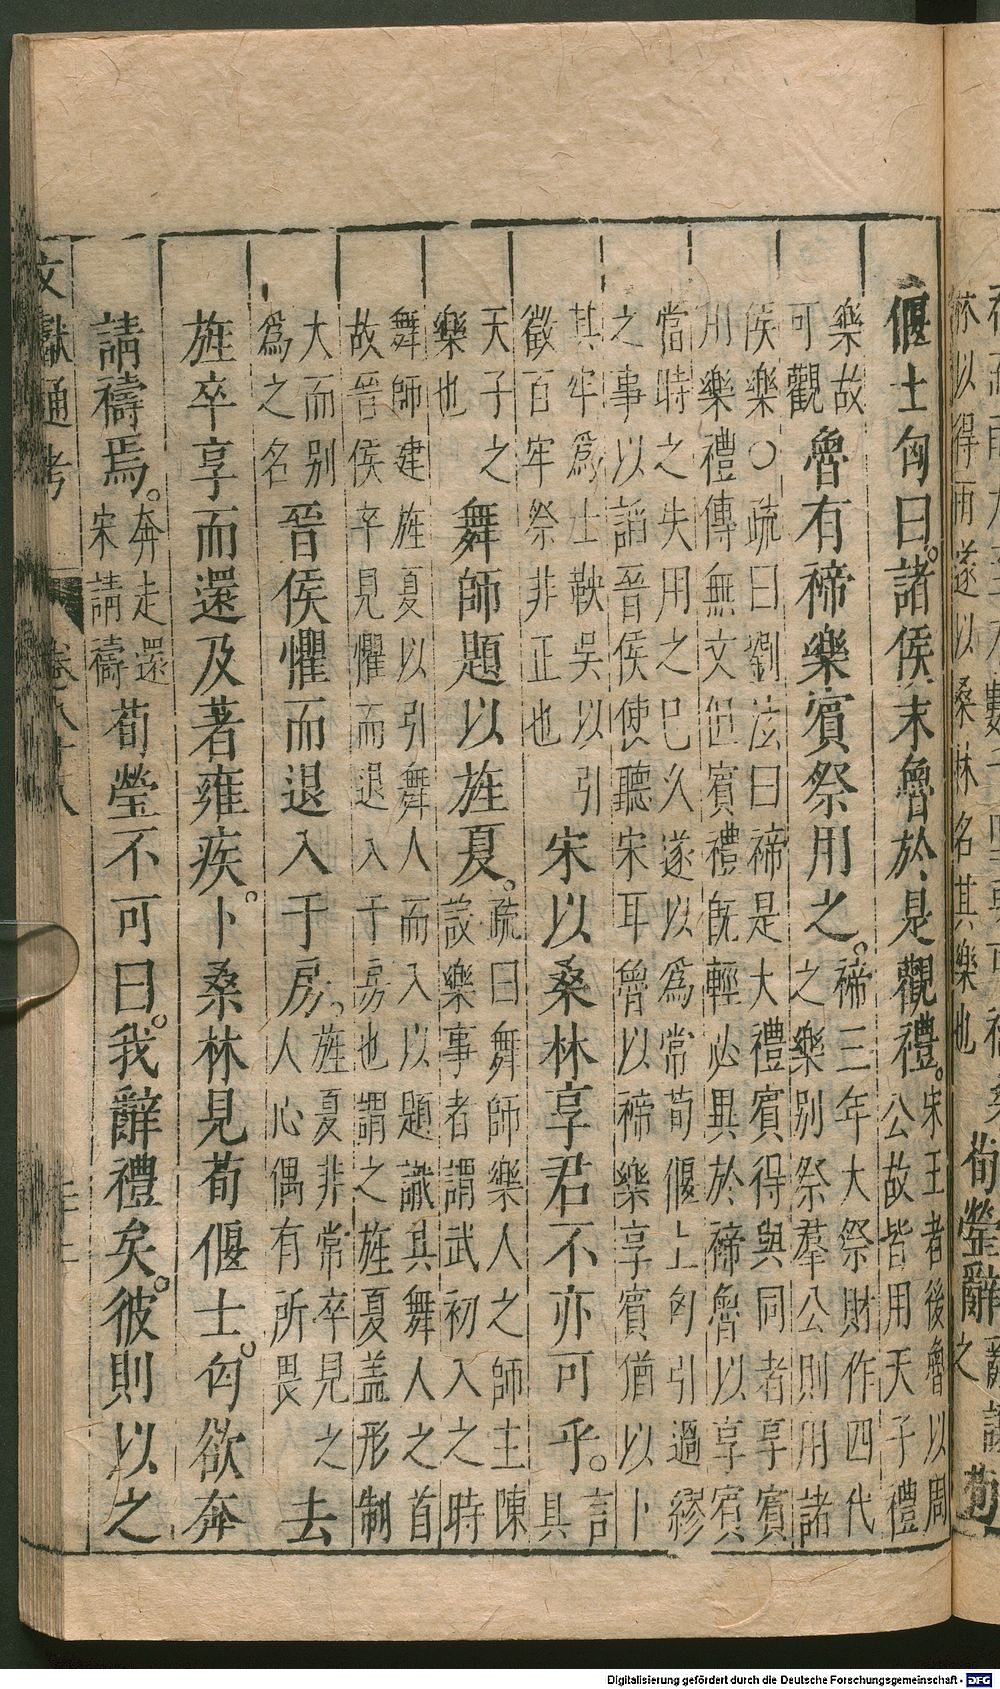 祢以得雨遂以桑林名其樂也
荀瑩辭之 辭讓 荀
偃士匄曰。諸侯宋魯於是觀禮。宋王者後魯以周
公故皆用天子禮
樂故
可觀魯有禘樂賓祭用之。禘三年大祭財作四代
之樂別祭羣公則用諸
侯樂○疏曰劉泫曰禘是大禮賓得與同者享賓
用樂禮傳無文但賓禮旣輕必異於禘魯以享賓
當時之失用之巳久遂以爲常荀偃士匄引過繆
之事以謟晉侯使聽宋耳魯以禘樂享賓猶以卜
其牢爲士鞅吳以引
徵百牢祭非正也宋以桑林享君不亦可乎。言
具
天子之
樂也舞師題以旌夏。疏曰舞師樂人之師主陳
設樂事者謂武初入之時
舞師建旌夏以引舞人而入以題識其舞人之首
故晉侯卒見懼而退入于房也謂之旌夏盖形制
大而别
爲之名晉侯懼而退入于房。旌夏非常卒見之
人心偶有所畏去
旌卒享而還及著雍疾。卜桑林見荀偃士。匄欲奔
請禱焉。奔走還
宋請禱荀瑩不可曰。我辭禮矣。彼則以之
文獻通考
Digitalisierung gefördert durch die Deutsche Forschungsgemeinschaft - DFG